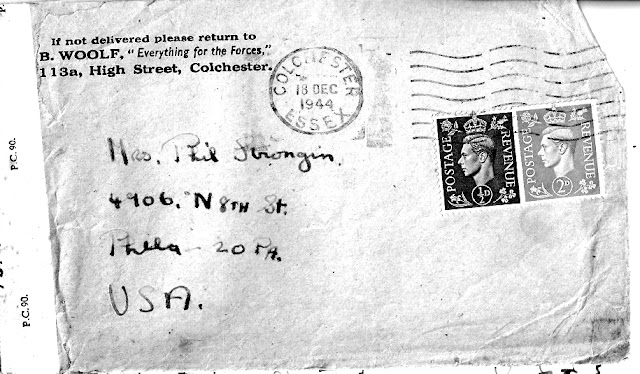 If not delivered please return to
B. WOOLF, "Everything for the Forces,"
113a, High Street, Colchester.
COLCHESTER
18 DEC
1944
ESSEX
POSTAGE REVENUE
½D
POSTAGE REVENUE
2D
Mrs. Phil Strongin.
4906. N 8TH St.
Phila - 20 PA.
USA.
P.C. 90.
P.C. 90.